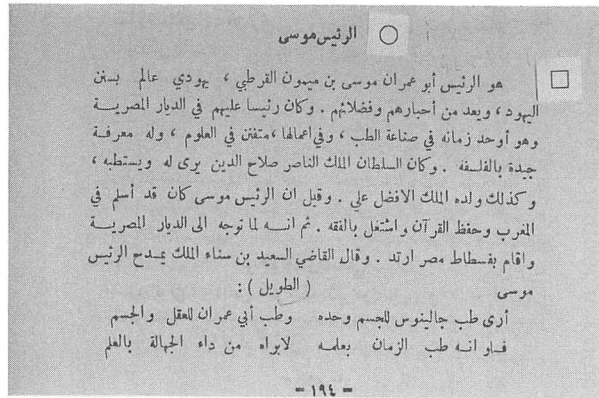 الرئيس موسى
هو الرئيس أبو عمران موسى بن ميمون القرطبي ، يهودي عالم بسنن
اليهود ، ويعد من أحبارهم وفضلائهم . وكان رئيسا عليهم في الديار المصرية
وهو أوحد زمانه في صناعة الطب ، وفي اعمالها ، متفنن في العلوم ، وله معرفة
جيدة بالفلسفه . وكان السلطان الملك الناصر صلاح الدين يرى له ويستطبه ،
وكذلك ولده الملك الافضل علي . وقيل ان الرئيس موسى كان قد أسلم في
المغرب وحفظ القرآن واشتغل بالفقه . ثم انه لما توجه الى الديار المصرية
واقام بفسطاط مصر ارتد . وقال القاضي السعيد بن سناء الملك يمدح الرئيس
موسى ( الطويل ) :
أرى طب جالينوس للجسم وحده وطب أبي عمران للعقل والجسم
فلو انه طب الزمان بعلمه لابراه من داء الجهالة بالعلم
- ١٩٤ -